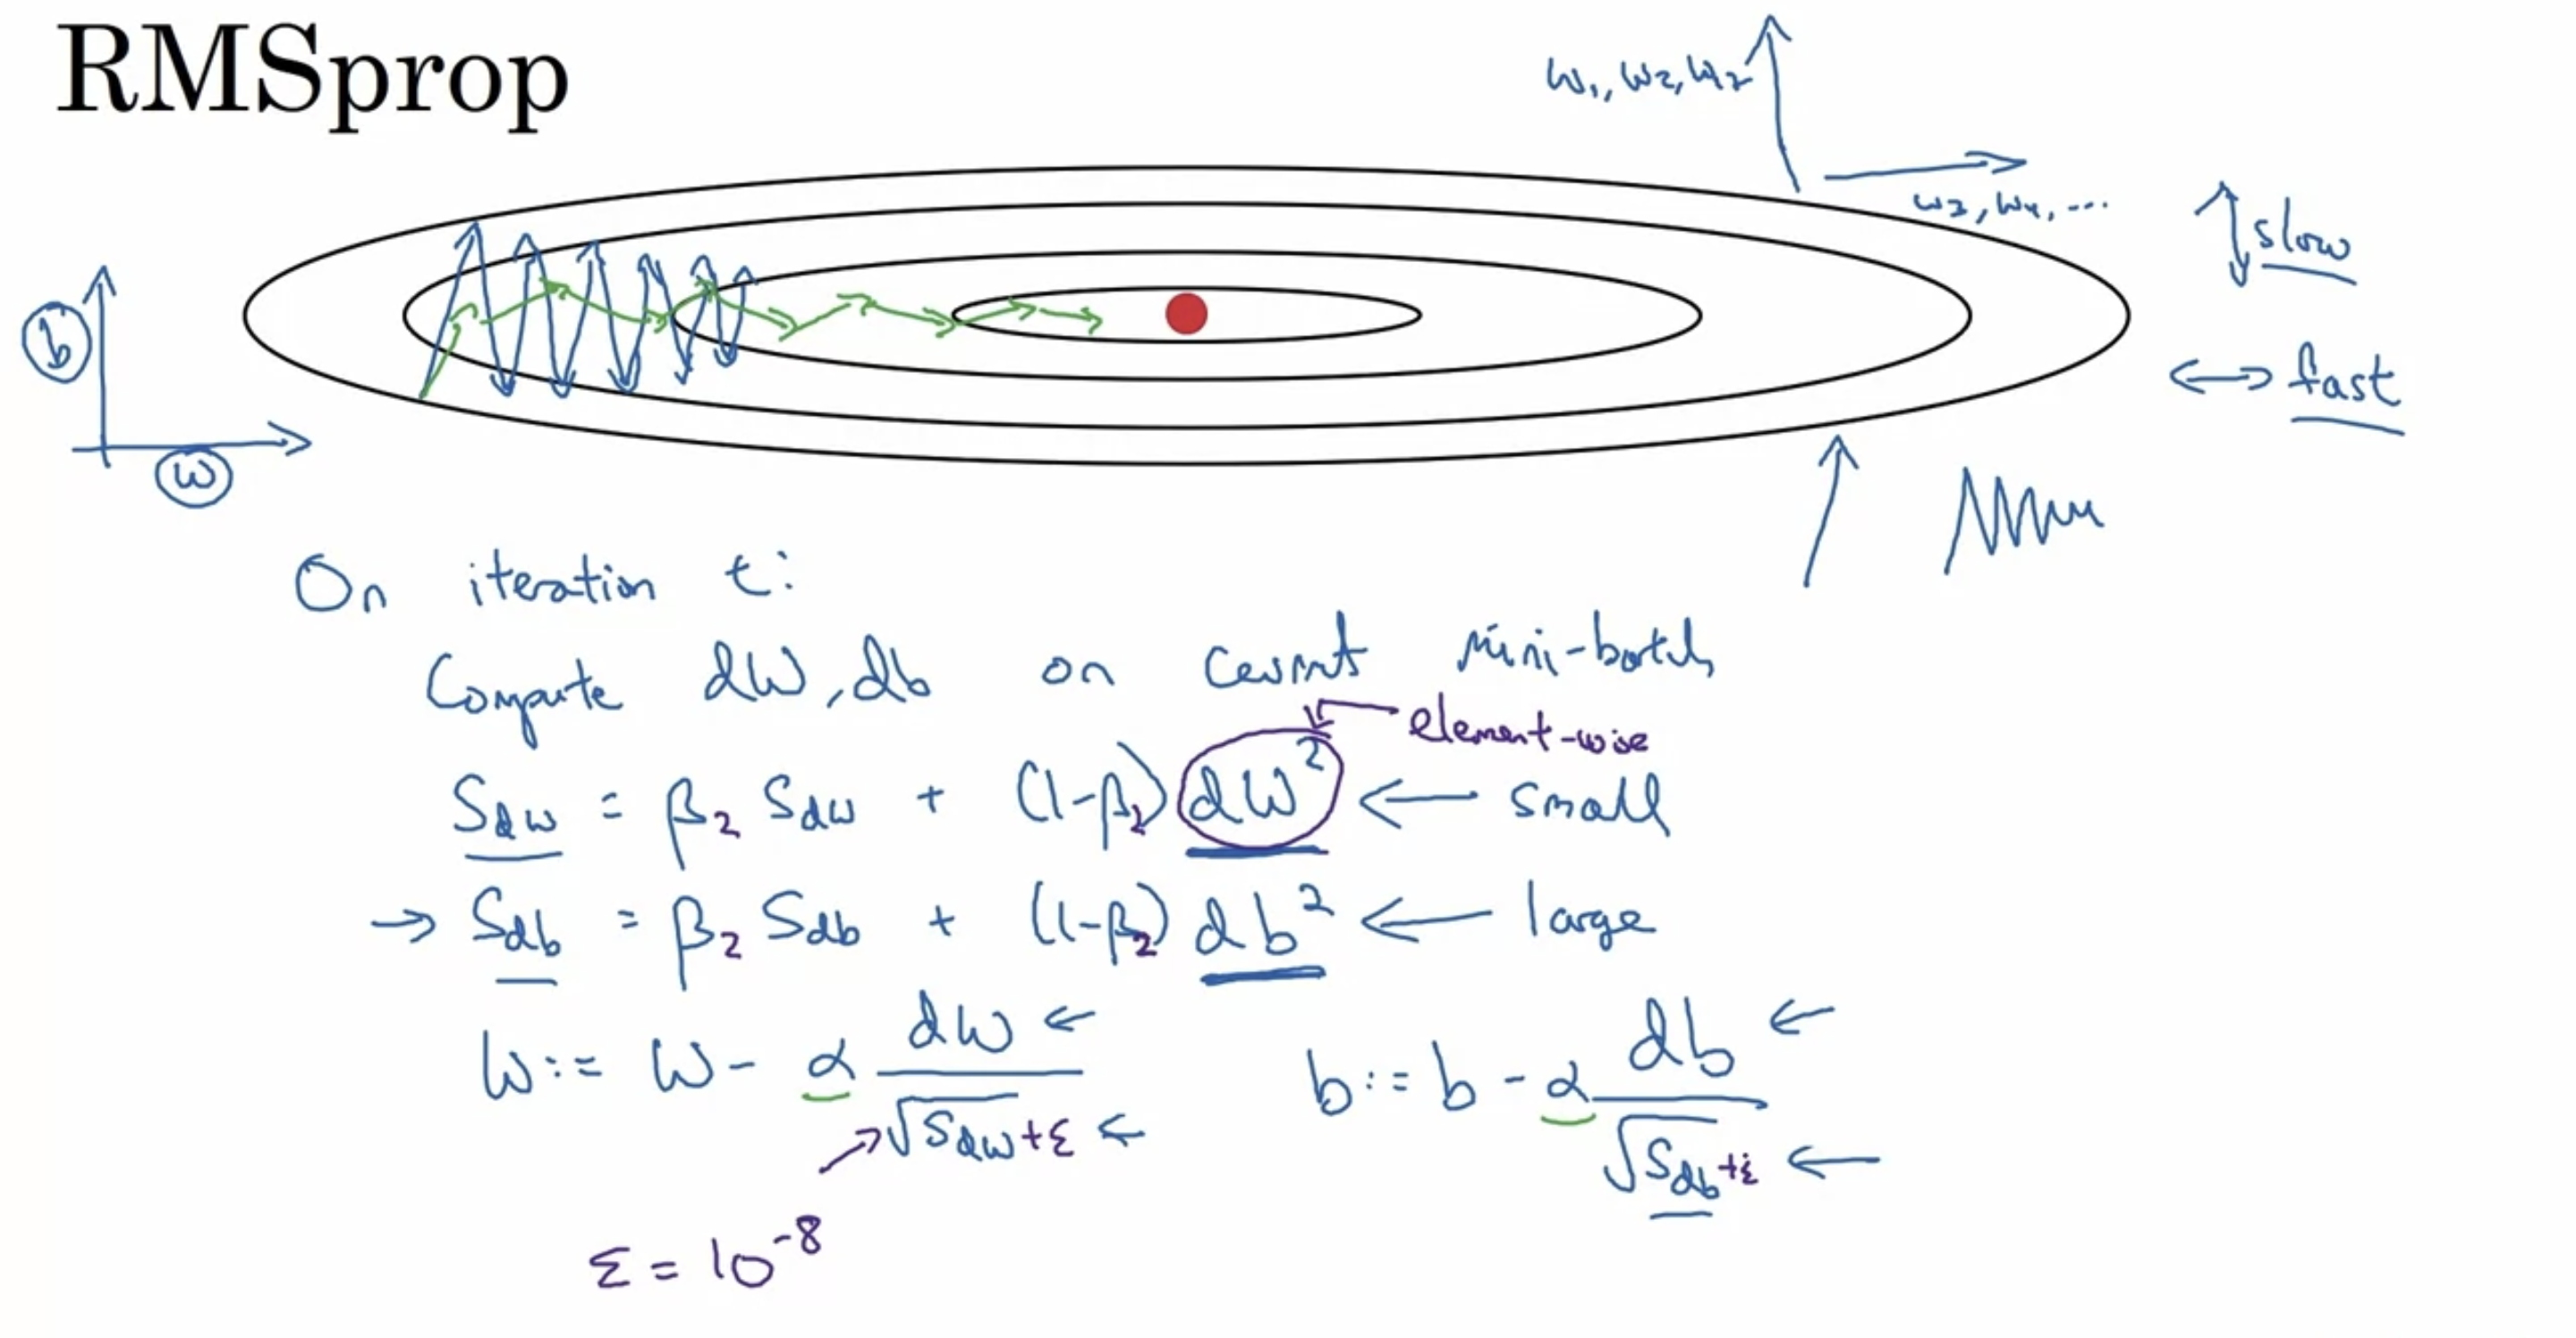 RMSprop
w₁, w₂, w₁₇
w₃, w₄, ...
slow
b
fast
w
On iteration t:
Compute dW, db on current mini-batch
element-wise
S_dw = β₂ S_dw + (1-β₂) dW² ← small
→ S_db = β₂ S_db + (1-β₂) db² ← large
W := W - α dW / √S_dw + ε ←
b := b - α db / √S_db + ε ←
ε = 10⁻⁸